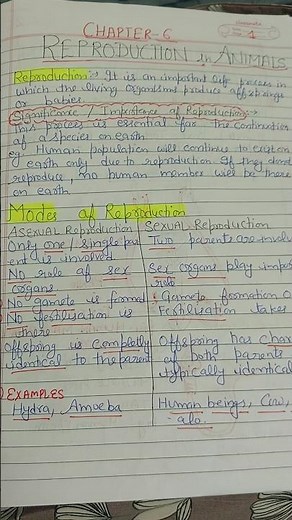 CHAPTER-6
1
REPRODUCTION in ANIMALS
Reproduction:- It is an important life process in
which the living organisms produce offsprings
or babies.
Significance / Importance of Reproduction:-
This process is essential for the continuation
of a species on earth
eg Human population will continue to exist on
earth only due to reproduction. If they don't
reproduce, no human member will be there
on earth.
Modes of Reproduction
ASEXUAL Reproduction SEXUAL Reproduction
Only one / single par Two parents are involv
ent is involved
No role of sex Sex organs play impor
organs role
No gamete is formed Gamete formation
No fertilisation is Fertilisation takes
there
Offspring is completly Offspring has char
identical to the parent of both parents
typically identical
EXAMPLES
Hydra, Amoeba Human beings, Cow,